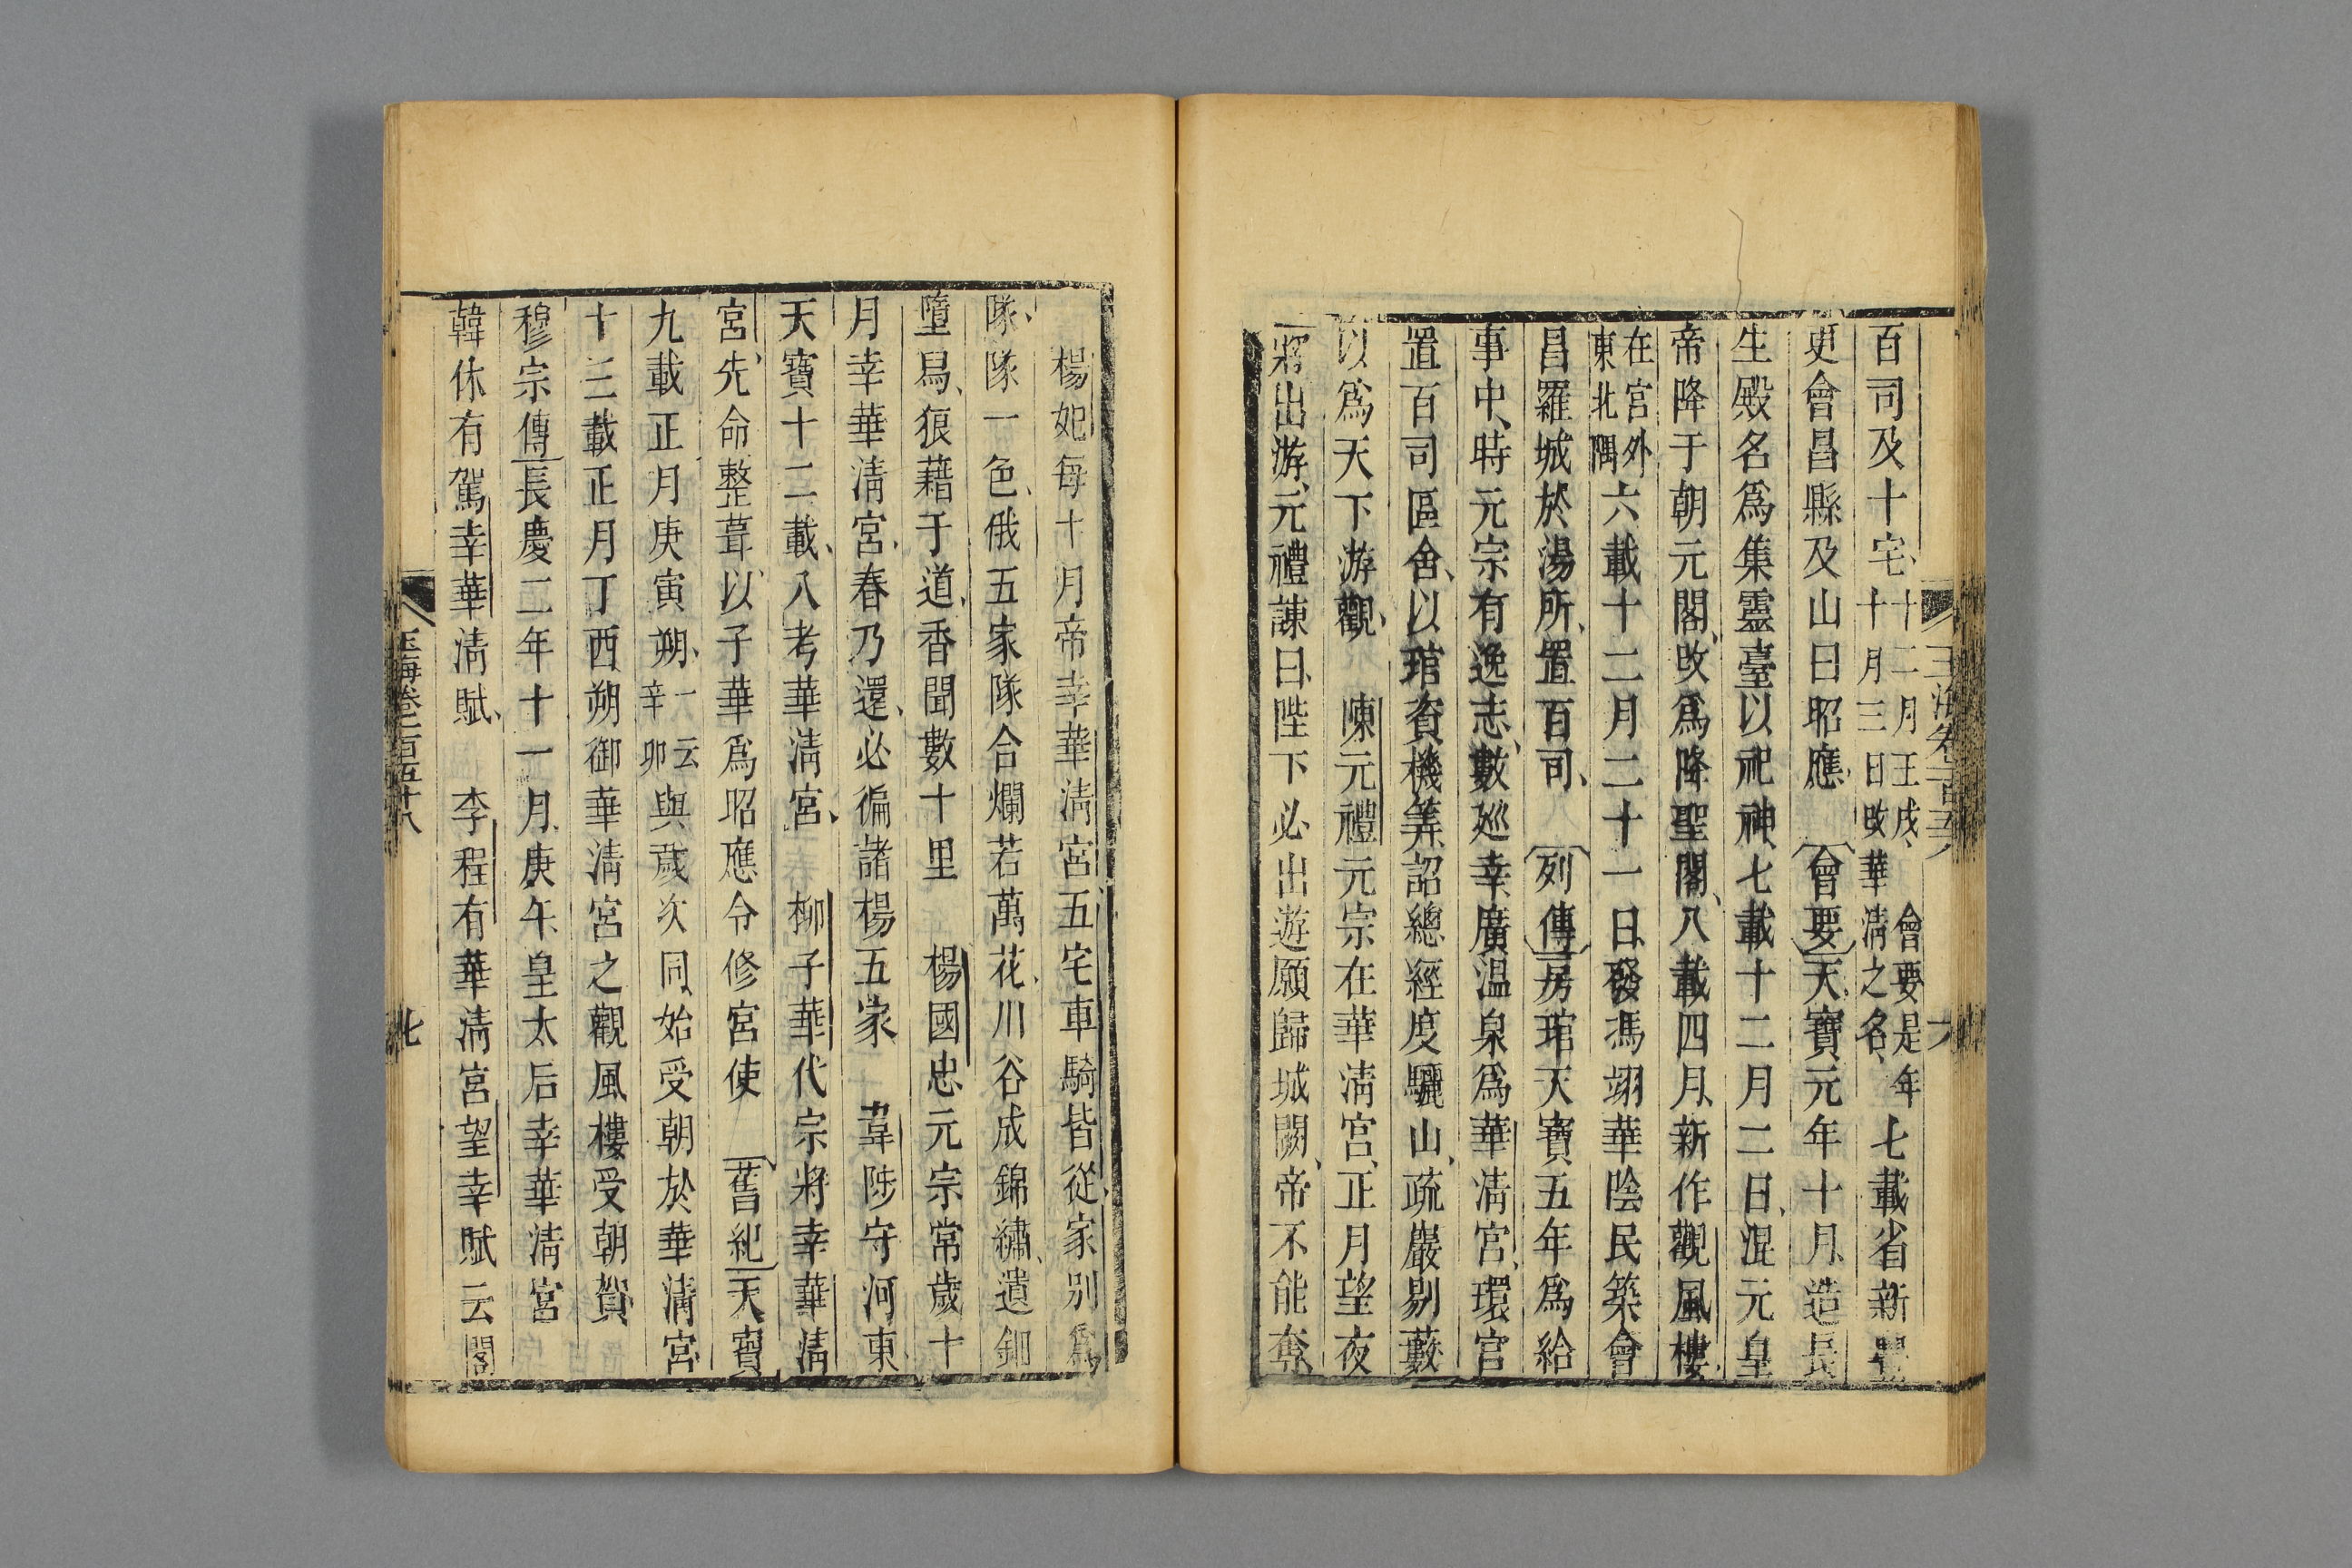 百司及十宅十二月壬戌會要是年十月三日改華清之名七載省新豐
更會昌縣及山曰昭應會要天寶元年十月造長
生殿名爲集靈臺以祀神七載十二月二日混元皇
帝降于朝元閣改爲降聖閣八載四月新作觀風樓
在宮外東北隅六載十二月二十一日發馮翊華陰民築會
昌羅城於湯所置百司列傳房琯天寶五年爲給
事中時元宗有逸志數巡幸廣温泉爲華清宮環宮
置百司區舍以琯資機筭詔總經度驪山疏巖剔藪
以爲天下游觀陳元禮元宗在華清宮正月望夜
將出游元禮諫曰陛下必出遊願歸城闕帝不能奪
楊妃每十月帝幸華清宮五宅車騎皆從家别爲
隊隊一色俄五家隊合爛若萬花川谷成錦繡遺鈿
墮舄狼藉于道香聞數十里楊國忠元宗常歲十
月幸華清宮春乃還必徧諸楊五家韋陟守河東
天寶十二載入考華清宮柳子華代宗將幸華清
宮先命整葺以子華爲昭應令修宮使舊紀天寶
九載正月庚寅朔一云辛卯與歲次同始受朝於華清宮
十三載正月丁酉朔御華清宮之觀風樓受朝賀
穆宗傳長慶二年十一月庚午皇太后幸華清宮
韓休有駕幸華清賦李程有華清宮望幸賦云閣
玉海卷一百五十八